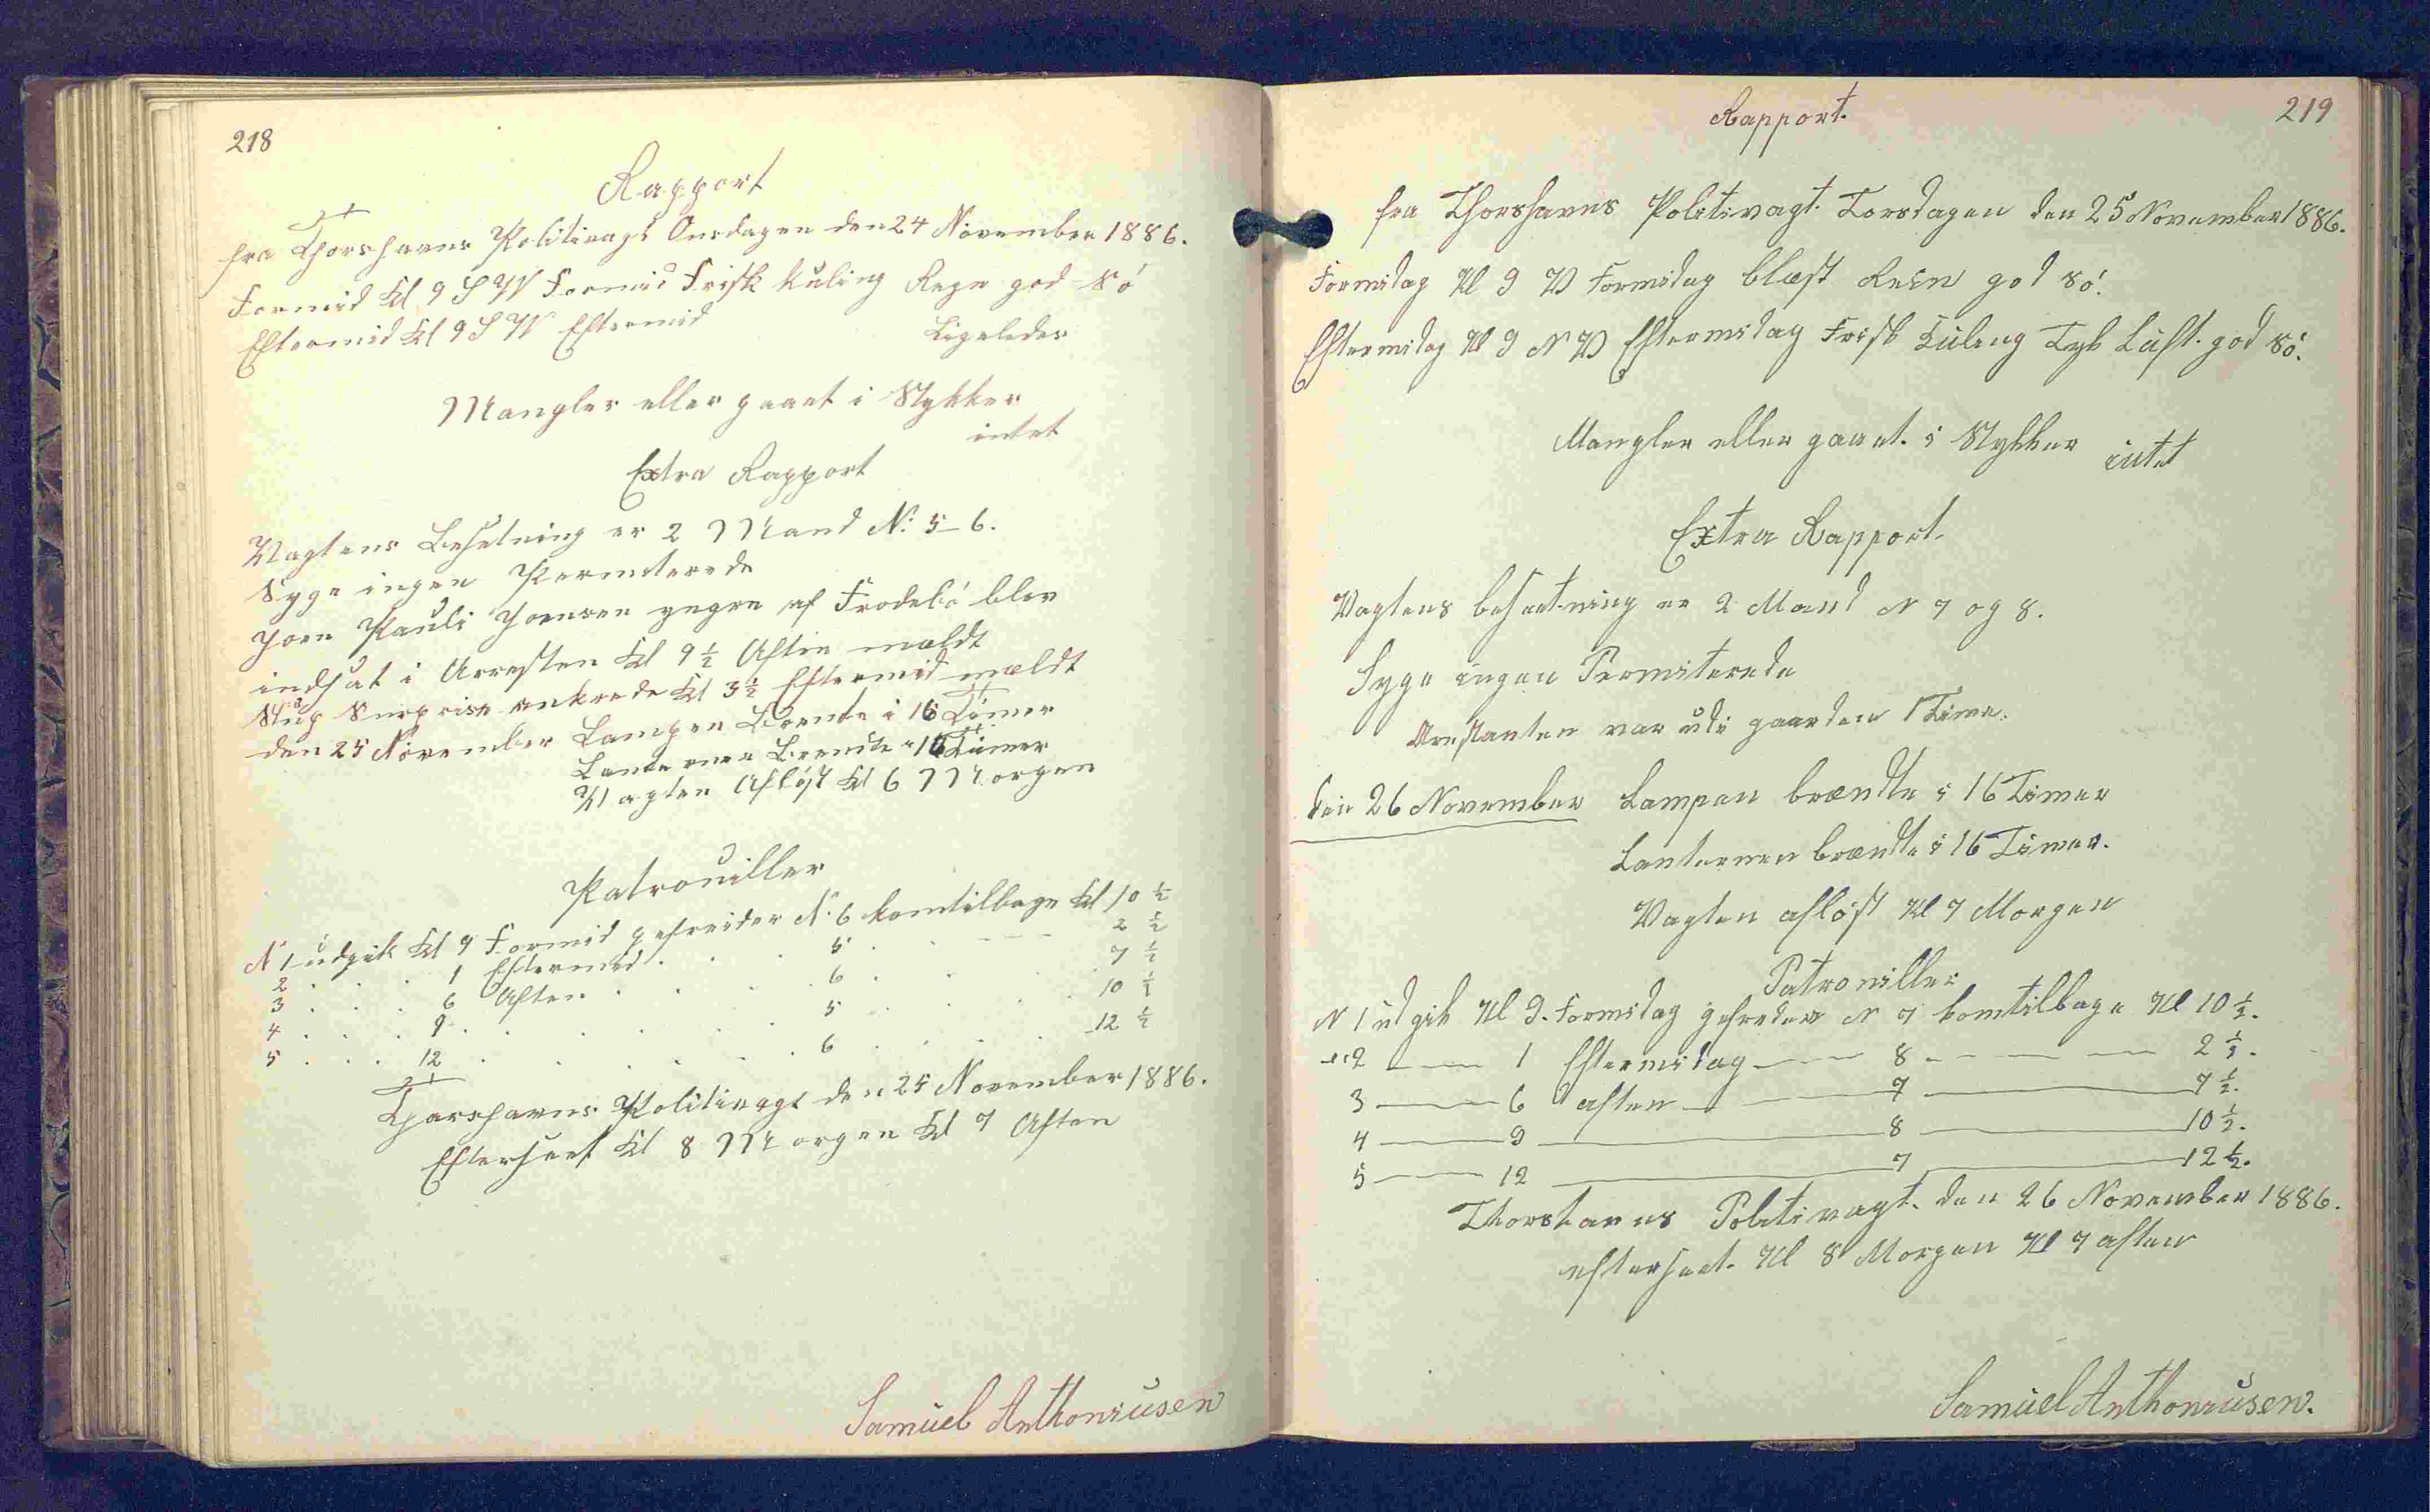 218
Rapport
fra Thorshavns Politivagt Onsdagen den 24 November 1886.
Formid Kl 9 S W Formid Frisk Kuling Regn god Sö
Eftermid Kl 9 S W Eftermid Ligeledes
Mangler eller gaaet i Stykker
intet
Extra Rapport
Vagtens Besetning er 2 Mand N: 5-6.
Syge ingen Permiterede
Joen Pauli Joensen yngre af Frodebö blev
indsat i Arresten Kl 9 ½ Aften mældt
Slup Surprise ankrede Kl 3½ Eftermid mældt
den 25 November Lampen Brente i 16 Timer
Lanternen Brendte i 16 Timer
Vagten Aflöst Kl 6 Morgen
Patrouiller
N 1 udgik Kl 9 Formid gefreider N: 6 komtilbage Kl 10 ½
2 . . . 1 Eftermid . . . 5 . . 2 ½
3 . . . 6 Aften . . . 6 . . 7 ½
4 . . . 9 . . . . . 5 . . . 10 ½
5 . . . 12 . . . . . 6 . . . 12 ½
Thorshavns Politivagt den 25 November 1886.
Efterseet Kl 8 Morgen Kl 7 Aften
Samuel Anthoniusen
219
Rapport.
fra Thorshavns Politivagt. Torsdagen den 25 November 1886.
Formidag Kl 9 W Formidag blæst Rein god Sö.
Eftermidag Kl 9 N W Eftermidag Frisk Kuling Tyk Luft. god Sö.
Mangler eller gaaet. i Stykker intet
Extra Rapport.
Vagtens besætning er 2 Mand N 7 og 8.
Syge ingen Permiterede
Arestanten var udi gaarden 1 Time.
den 26 November Lampen brændte i 16 Timer
Lanternen brændte i 16 Timer.
Vagten aflöst Kl 7 Morgen
Patrouiller
N 1 udgik Kl 9. Formidag gefreder N 7 komtilbage Kl 10 ½.
2 — 1 Eftermidag — 8 — — 2 ½.
3 — 6 aften — 7 — 7 ½.
4 — 9 — 8 — 10 ½.
5 — 12 — 7 — 12 ½.
Thorshavns Politivagt. den 26 November 1886.
efterseet. Kl 8 Morgen Kl 7 aften
Samuel Anthoniusen.